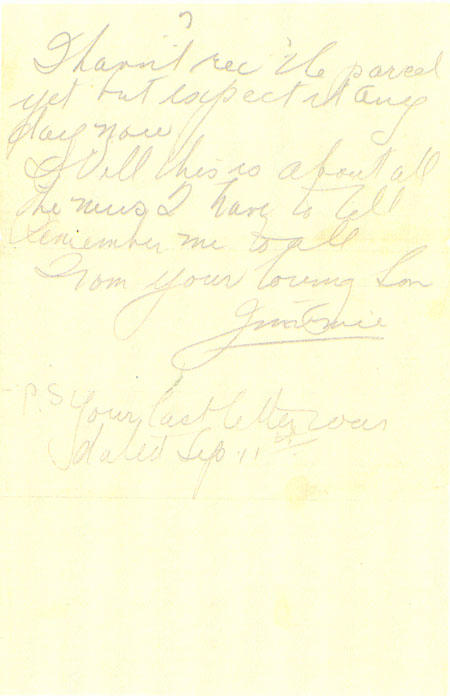 I havn't rec the parcel
yet but expect it any
day now
Well this is about all
the news I have to tell
remember me to all
From your loving Son
P.S. Your last letter was
dated Sep 11th